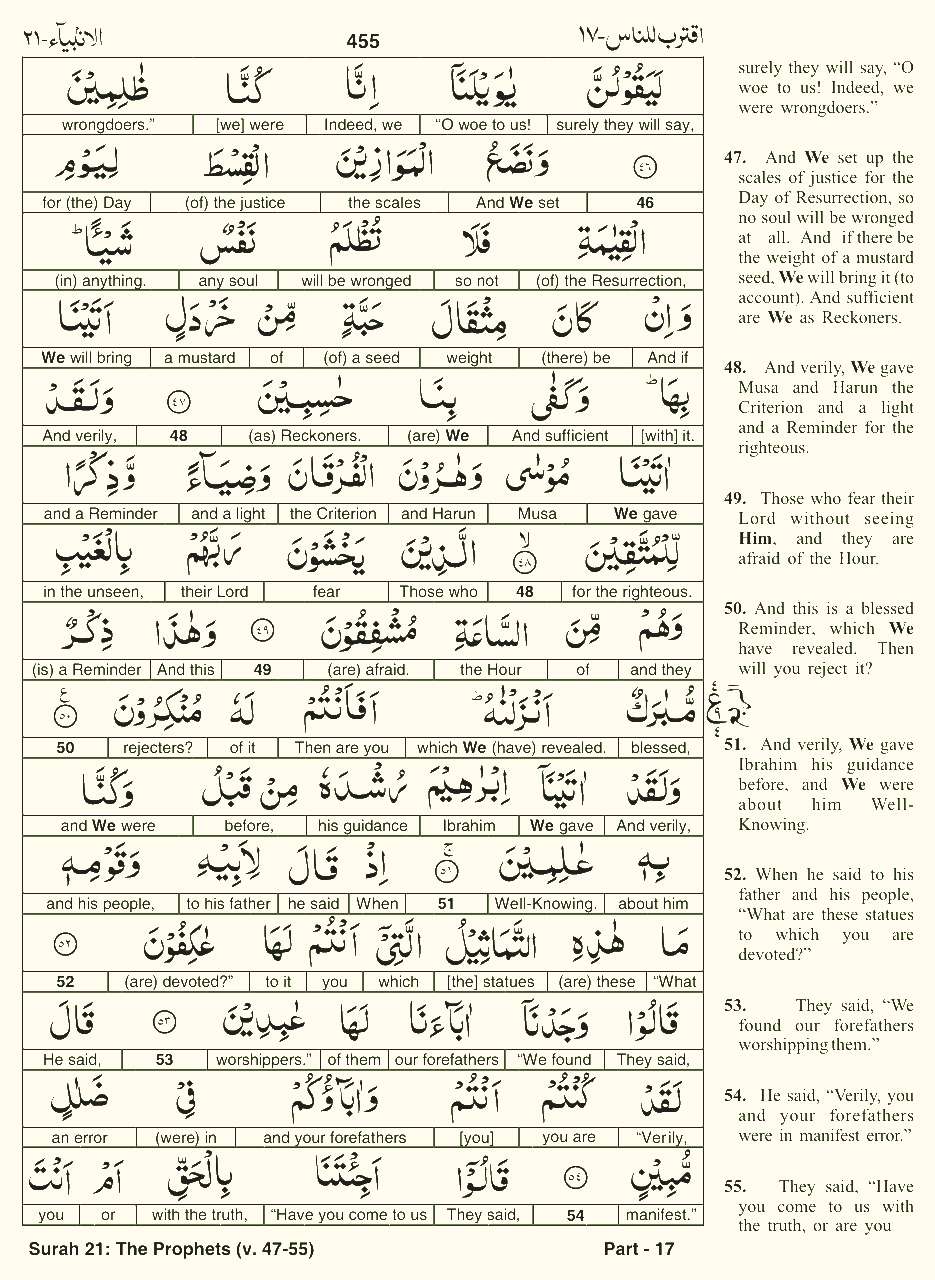 اقترب للناس-١٧ 455 الانبيآء-٢١
لَيَقُوْلُنَّ يٰوَيْلَنَآ اِنَّا كُنَّا ظٰلِمِيْنَ
surely they will say, “O woe to us! Indeed, we [we] were wrongdoers.”
٤٦ وَنَضَعُ الْمَوَازِيْنَ الْقِسْطَ لِيَوْمِ
46 And We set the scales (of) the justice for (the) Day
الْقِيٰمَةِ فَلَا تُظْلَمُ نَفْسٌ شَيْـًٔا ؕ
(of) the Resurrection, so not will be wronged any soul (in) anything.
وَاِنْ كَانَ مِثْقَالَ حَبَّةٍ مِّنْ خَرْدَلٍ اَتَيْنَا
And if (there) be weight (of) a seed of a mustard We will bring
بِهَا ؕ وَكَفٰى بِنَا حٰسِبِيْنَ ٤٧ وَلَقَدْ
[with] it. And sufficient (are) We (as) Reckoners. 48 And verily,
اٰتَيْنَا مُوْسٰى وَهٰرُوْنَ الْفُرْقَانَ وَضِيَآءً وَّذِكْرًا
We gave Musa and Harun the Criterion and a light and a Reminder
لِّلْمُتَّقِيْنَ ٤٨ ۙ الَّذِيْنَ يَخْشَوْنَ رَبَّهُمْ بِالْغَيْبِ
for the righteous. 48 Those who fear their Lord in the unseen,
وَهُمْ مِّنَ السَّاعَةِ مُشْفِقُوْنَ ٤٩ وَهٰذَا ذِكْرٌ
and they of the Hour (are) afraid. 49 And this (is) a Reminder
مُّبٰرَكٌ اَنْزَلْنٰهُ ؕ اَفَاَنْتُمْ لَهٗ مُنْكِرُوْنَ ٥٠ ع
blessed, which We (have) revealed. Then are you of it rejecters? 50
وَلَقَدْ اٰتَيْنَآ اِبْرٰهِيْمَ رُشْدَهٗ مِنْ قَبْلُ وَكُنَّا
And verily, We gave Ibrahim his guidance before, and We were
بِهٖ عٰلِمِيْنَ ٥١ ۚ اِذْ قَالَ لِاَبِيْهِ وَقَوْمِهٖ
about him Well-Knowing. 51 When he said to his father and his people,
مَا هٰذِهِ التَّمَاثِيْلُ الَّتِيْٓ اَنْتُمْ لَهَا عٰكِفُوْنَ ٥٢
“What (are) these [the] statues which you to it (are) devoted?” 52
قَالُوْا وَجَدْنَآ اٰبَآءَنَا لَهَا عٰبِدِيْنَ ٥٣ قَالَ
They said, “We found our forefathers of them worshippers.” 53 He said,
لَقَدْ كُنْتُمْ اَنْتُمْ وَاٰبَآؤُكُمْ فِيْ ضَلٰلٍ
“Verily, you are [you] and your forefathers (were) in an error
مُّبِيْنٍ ٥٤ قَالُوْٓا اَجِئْتَنَا بِالْحَقِّ اَمْ اَنْتَ
manifest.” 54 They said, “Have you come to us with the truth, or you
surely they will say, “O
woe to us! Indeed, we
were wrongdoers.”
47. And We set up the
scales of justice for the
Day of Resurrection, so
no soul will be wronged
at all. And if there be
the weight of a mustard
seed, We will bring it (to
account). And sufficient
are We as Reckoners.
48. And verily, We gave
Musa and Harun the
Criterion and a light
and a Reminder for the
righteous.
49. Those who fear their
Lord without seeing
Him, and they are
afraid of the Hour.
50. And this is a blessed
Reminder, which We
have revealed. Then
will you reject it?
51. And verily, We gave
Ibrahim his guidance
before, and We were
about him Well-
Knowing.
52. When he said to his
father and his people,
“What are these statues
to which you are
devoted?”
53. They said, “We
found our forefathers
worshipping them.”
54. He said, “Verily, you
and your forefathers
were in manifest error.”
55. They said, “Have
you come to us with
the truth, or are you
Surah 21: The Prophets (v. 47-55) Part - 17